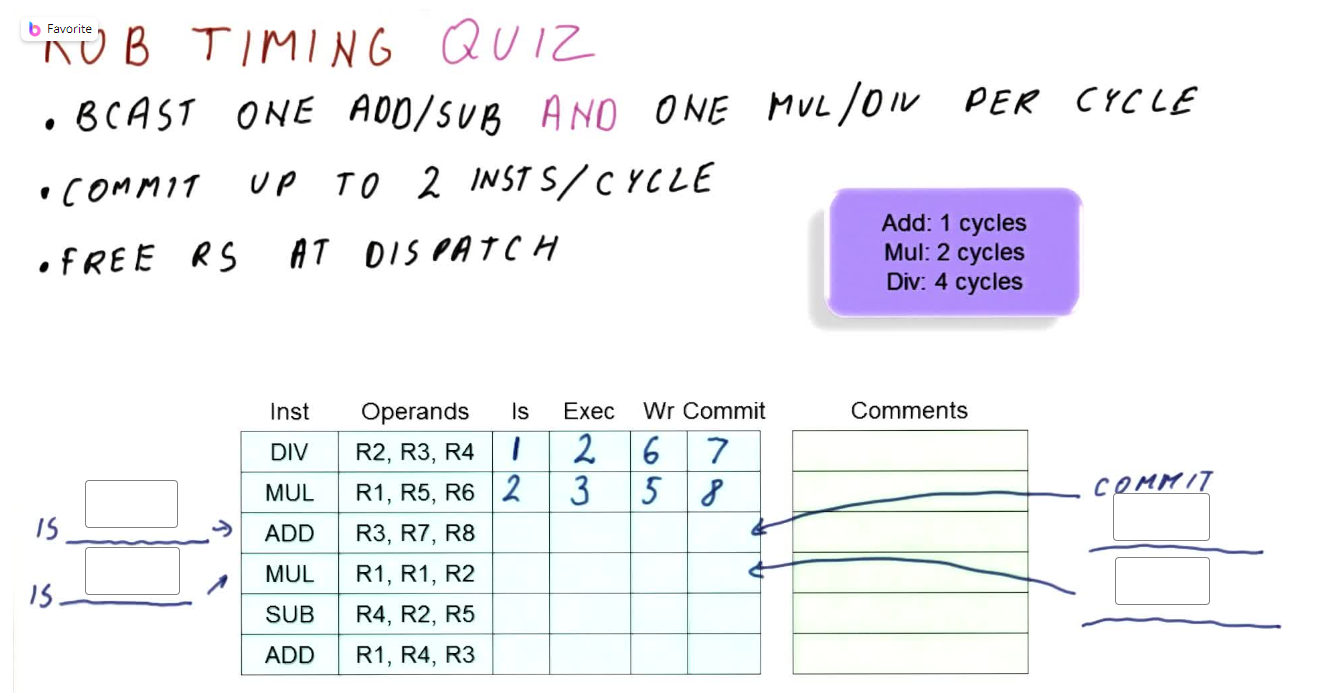 Favorite
ROB TIMING QUIZ
• BCAST ONE ADD/SUB AND ONE MUL/DIV PER CYCLE
• COMMIT UP TO 2 INSTS/CYCLE
• FREE RS AT DISPATCH
Add: 1 cycles
Mul: 2 cycles
Div: 4 cycles
Inst Operands Is Exec Wr Commit Comments
DIV R2, R3, R4 1 2 6 7
MUL R1, R5, R6 2 3 5 8
COMMIT
IS
ADD R3, R7, R8
MUL R1, R1, R2
IS
SUB R4, R2, R5
ADD R1, R4, R3